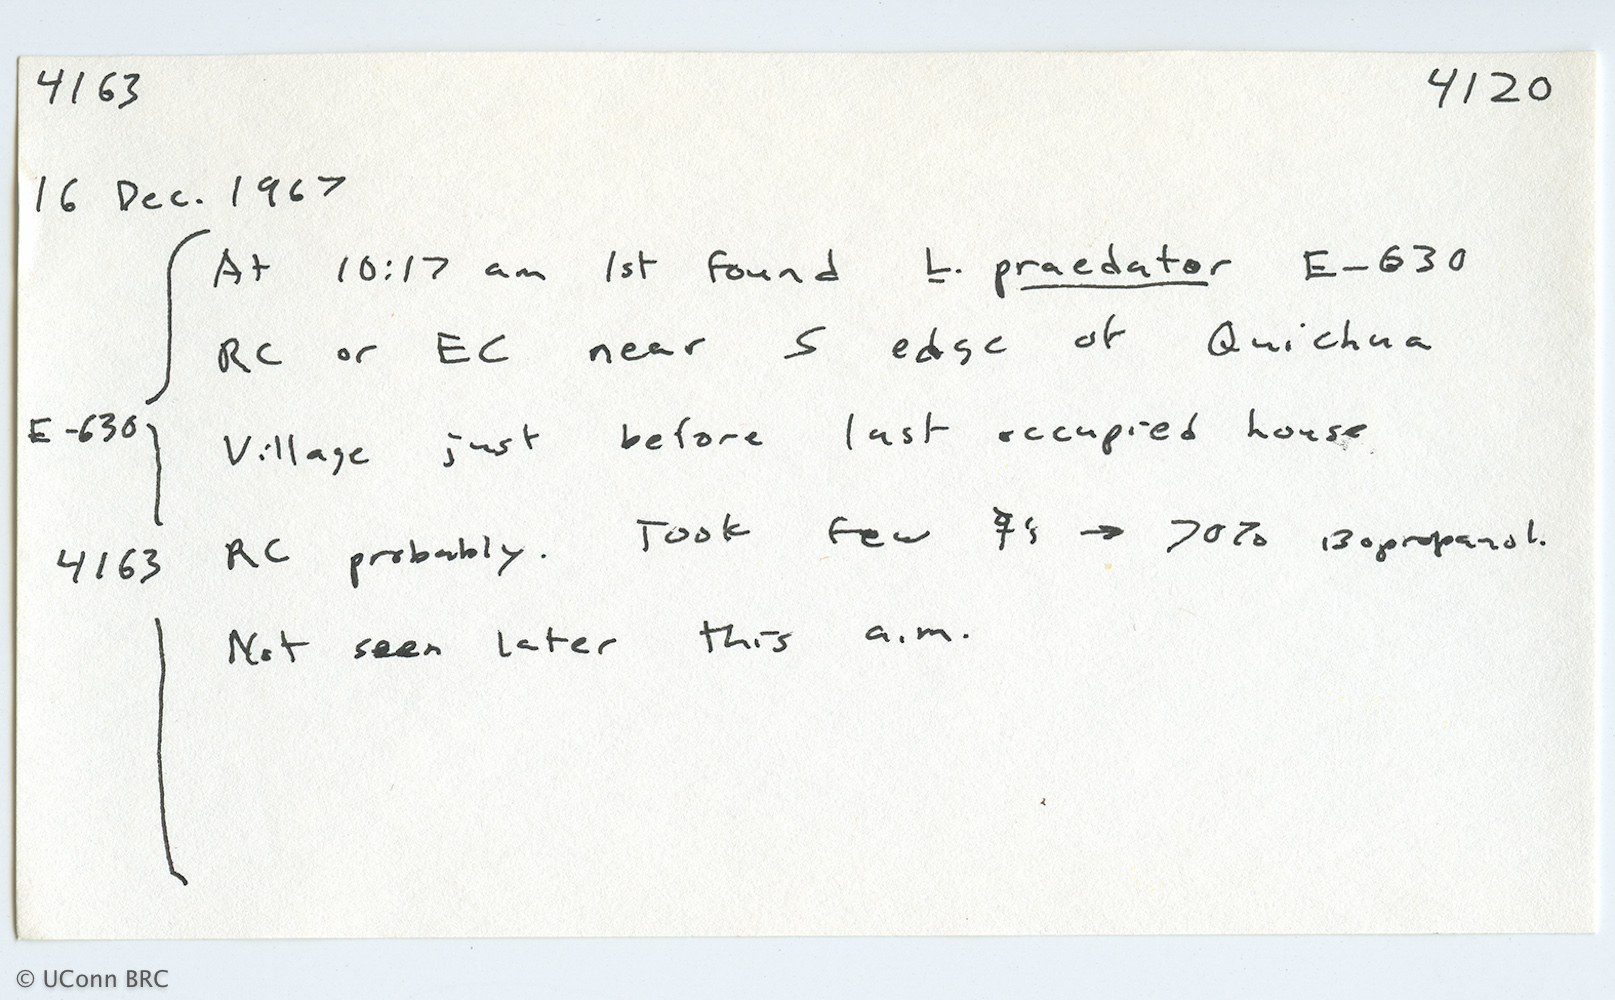 4163 4120
16 Dec. 1967
At 10:17 am 1st found L. praedator E-630
RC or EC near S edge of Quichua
E-630 Village just before last occupied house
4163 RC probably. Took few ♀s → 70% isopropanol.
Not seen later this a.m.
© UConn BRC